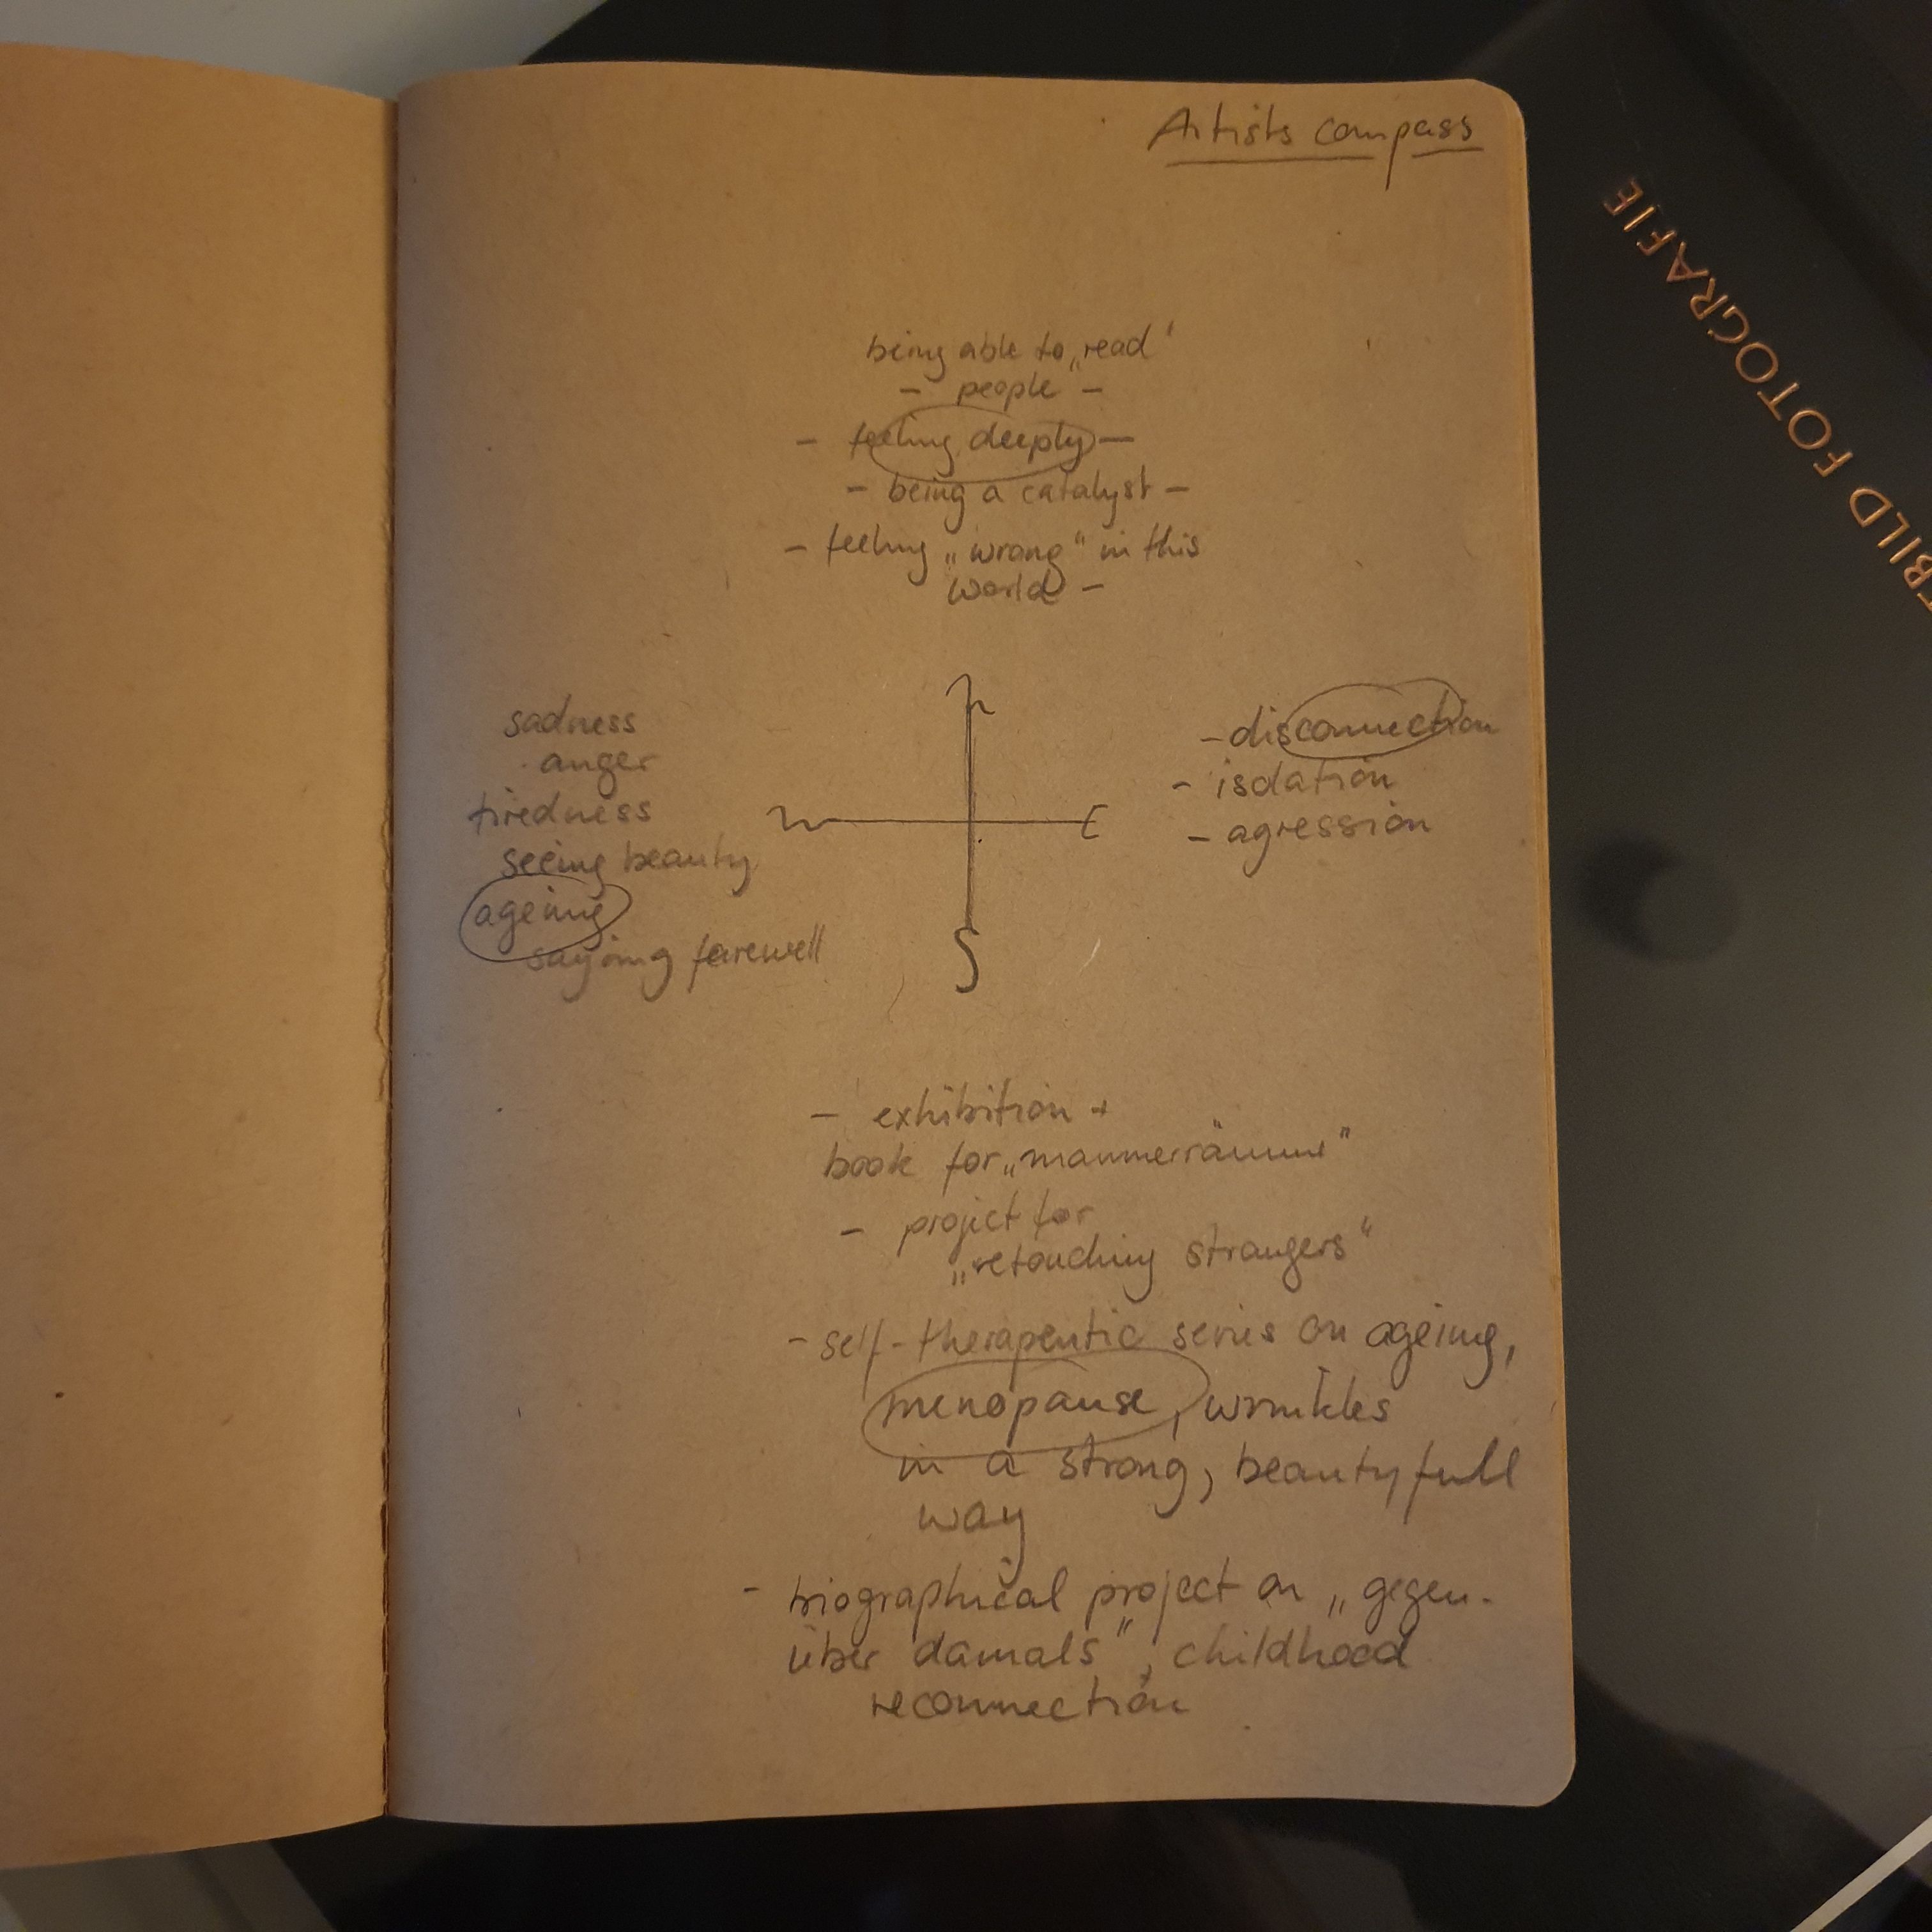 Artists compass
being able to „read"
- people -
- feeling deeply -
- being a catalyst -
- feeling „wrong" in this
world -
N
sadness
anger
tiredness
seeing beauty
ageing
sayiing farewell
W
E
- disconnection
- isolation
- agression
S
- exhibition +
book for
- project for
„retouching strangers"
- self-therapeutic series on ageing,
menopause, wrinkles
in a strong, beautyfull
way
- biographical project on „gegen-
über damals", childhood
reconnection
BILD FOTOGRAFIE